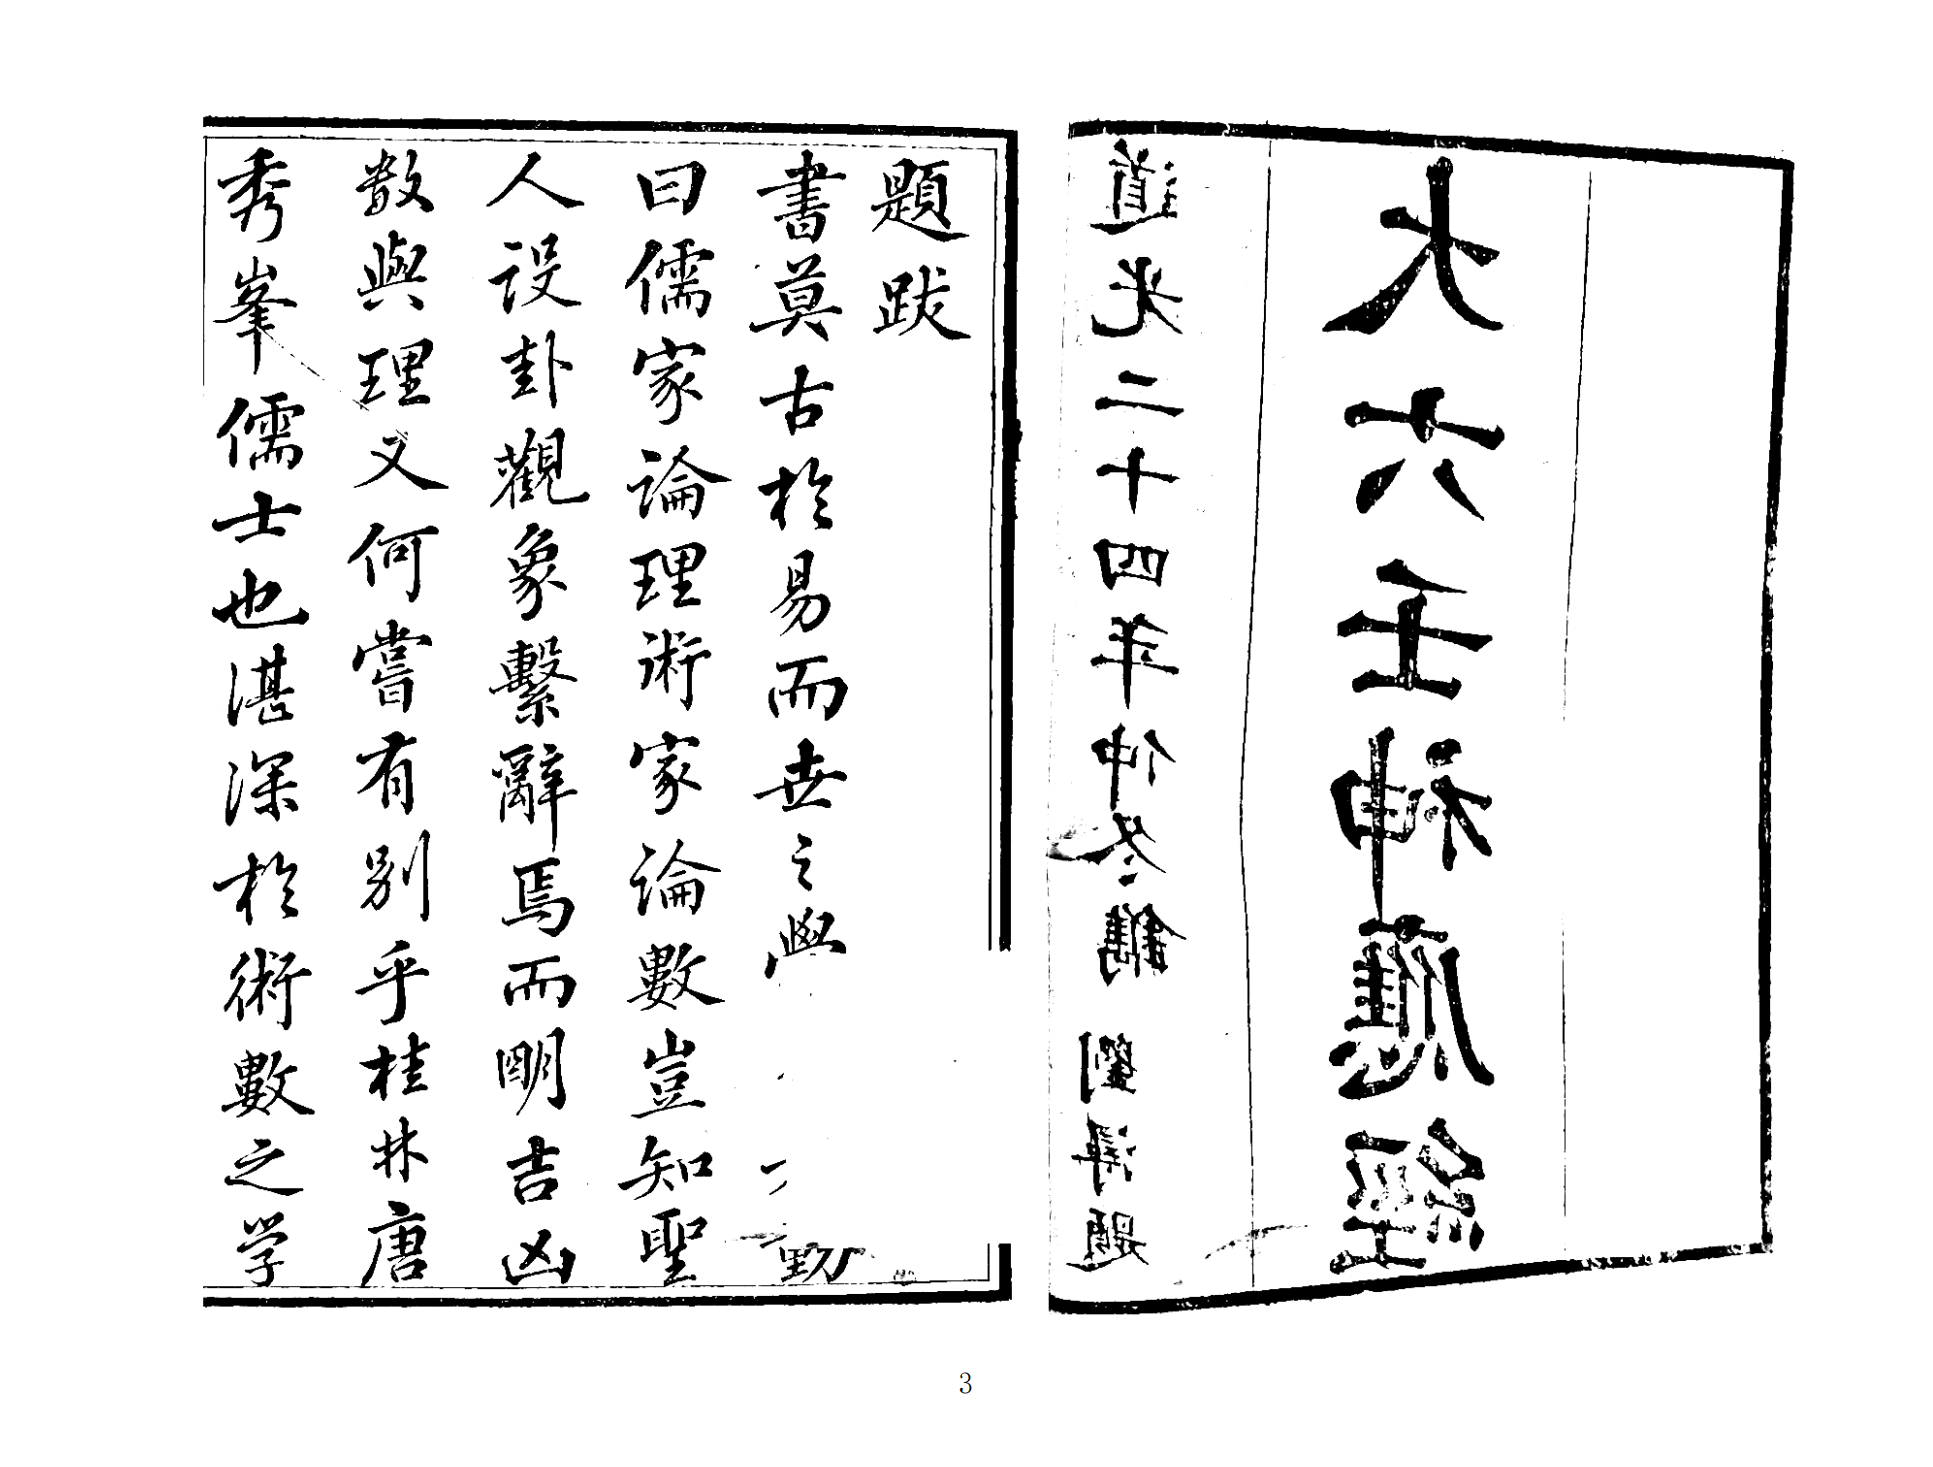 大六壬神應經
道光二十四年仲冬鐫
劉潯題
題跋
書莫古於易而世之學
曰儒家論理術家論數豈知聖
人設卦觀象繫辭焉而明吉凶
数與理又何嘗有別乎桂林唐
秀峯儒士也湛深於術數之学
3